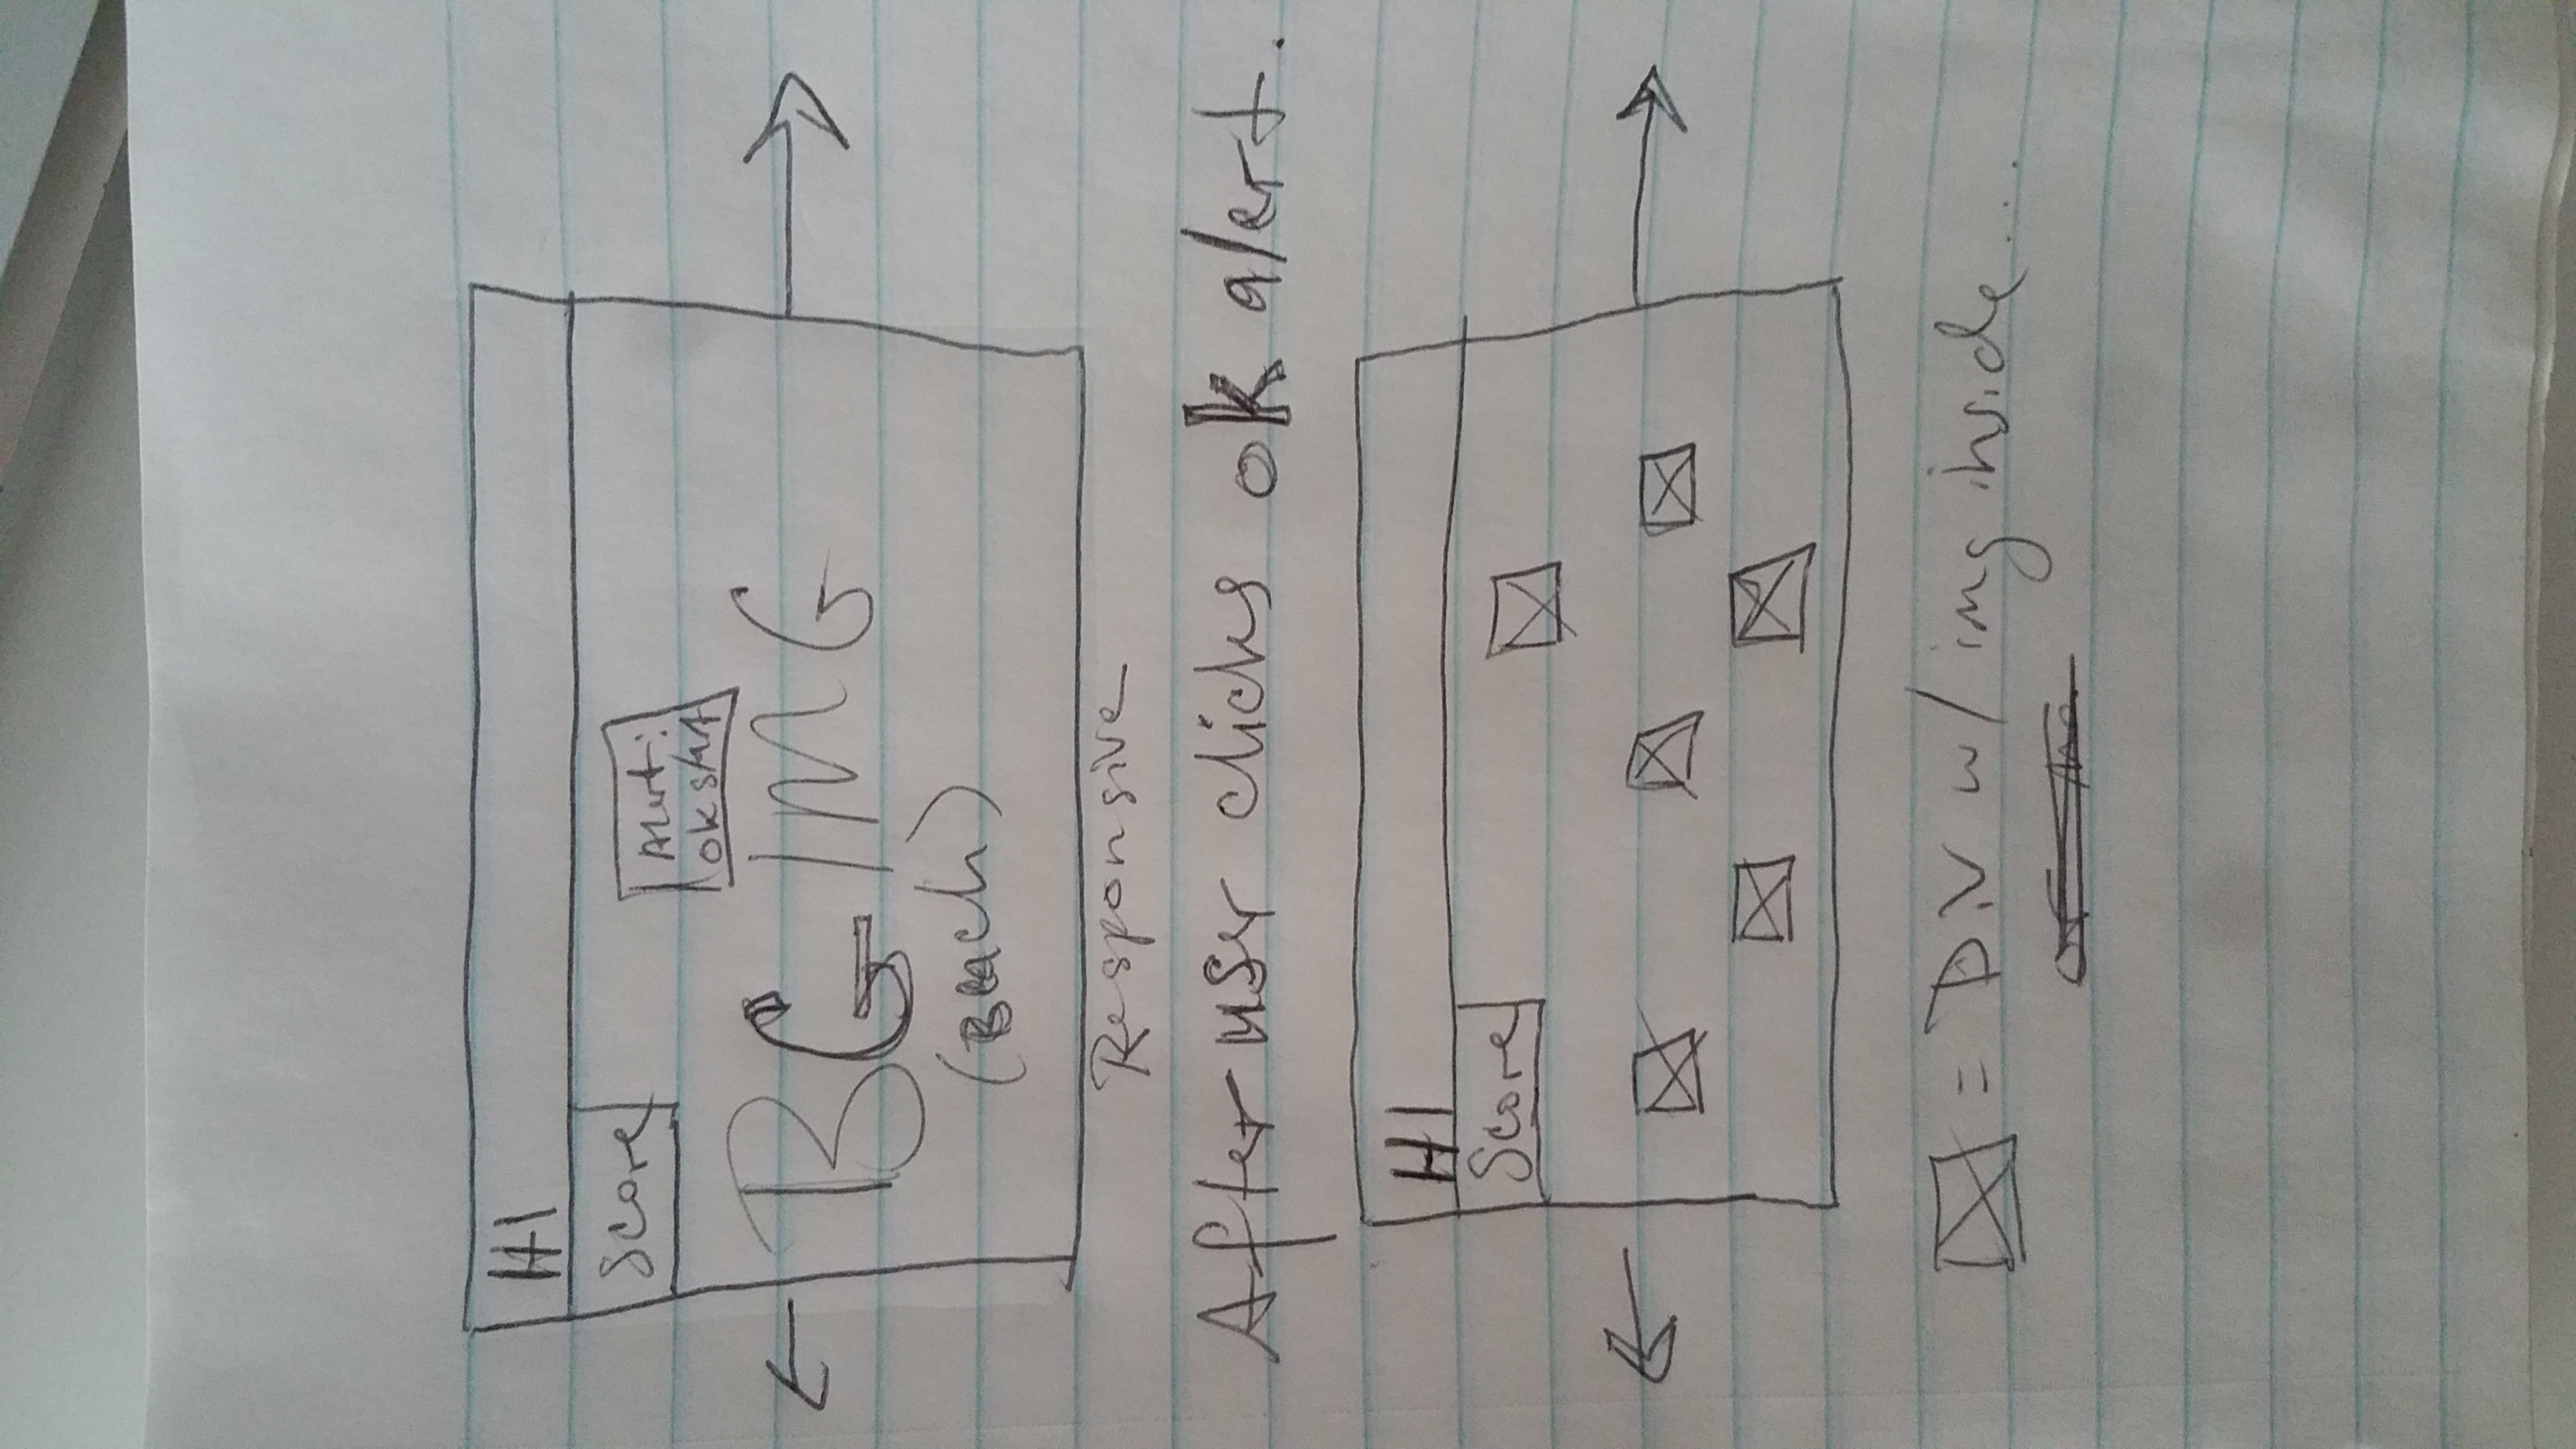 H1
Score
Alert:
ok start
BG IMG
(Beach)
Responsive
After user clicks ok alert.
H1
Score
= Div w/ img inside...